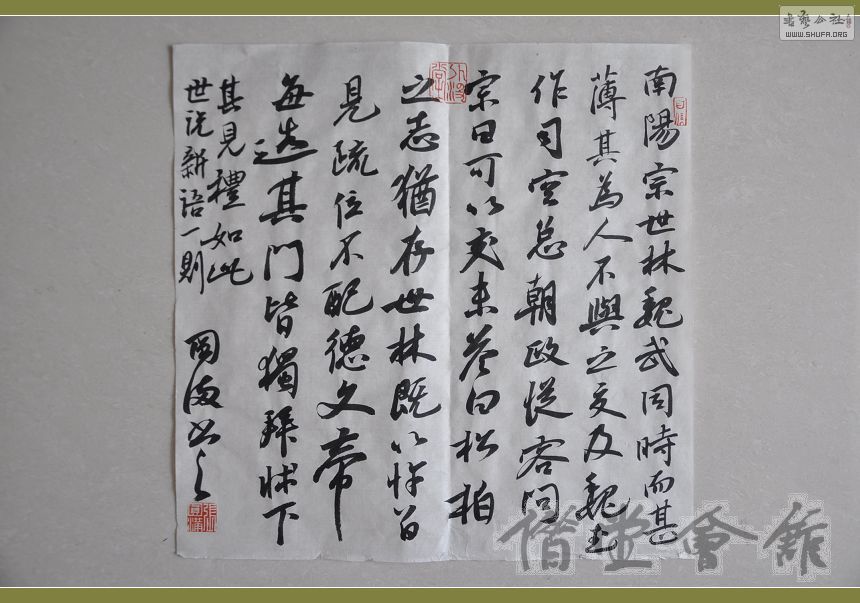 南陽宗世林魏武同時而甚
薄其為人不與之交及魏武
作司空总朝政從容問
宗曰可以交未荅曰松柏
之志猶存世林既以忤旨
見疏位不配德文帝
每造其門皆獨拜牀下
其見禮如此
世说新语一則
书之
书艺公社
WWW.SHUFA.ORG